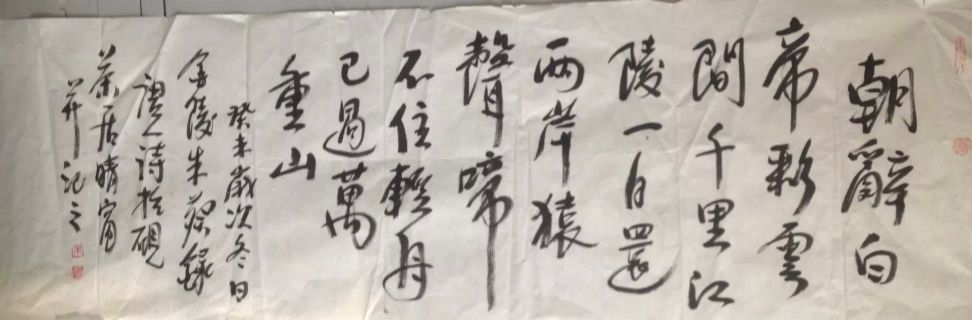 朝辭白
帝彩雲
間千里江
陵一日還
兩岸猿
聲啼
不住輕舟
已過萬
重山
癸未歲次冬日
金陵朱葵錄
唐人詩於硯
葉居晴窗
并記之